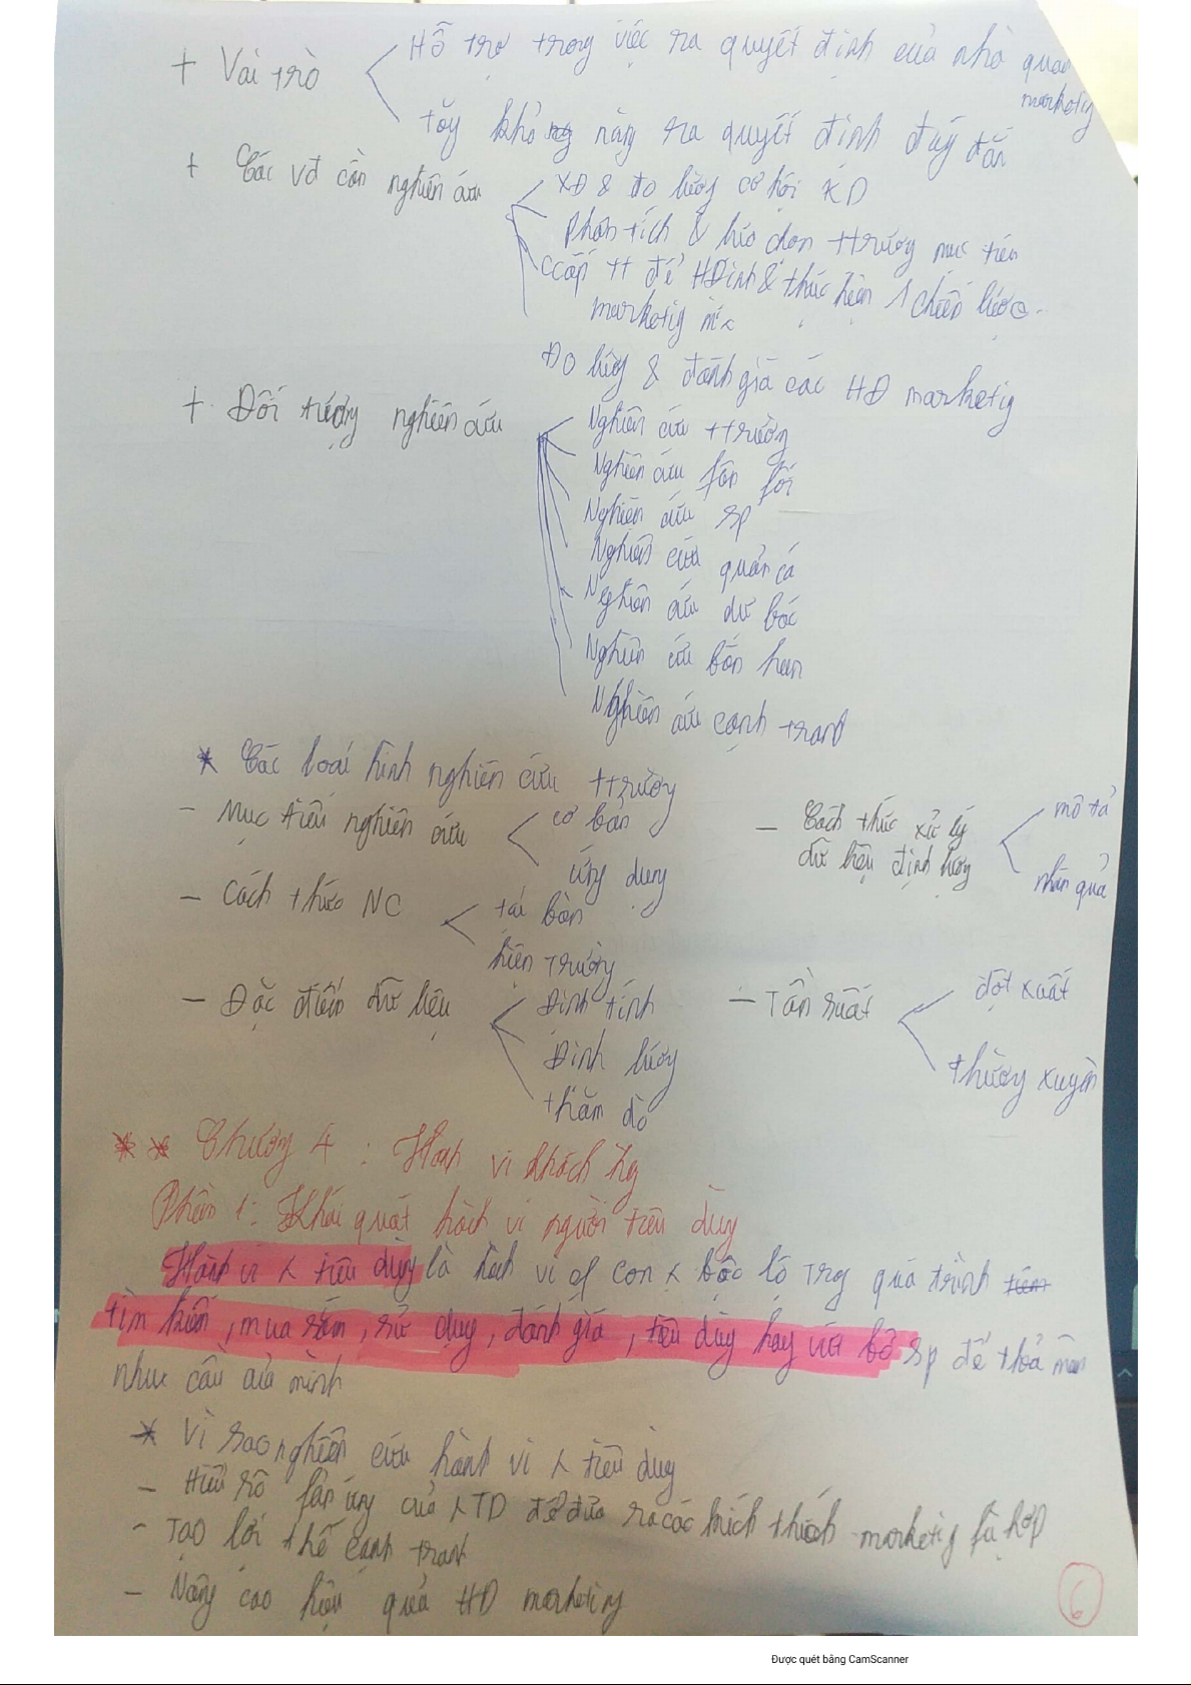 + Vai trò
Hỗ trợ trong việc ra quyết định của nhà quản
marketig
tăg khả năng ra quyết định đúg đắn
+ Các vđ cần nghiên cứu
XĐ & đo lườg cơ hội KD
Phân tích & lựa chọn ttrườg mục tiêu
Ccấp tt để HĐịnh & thực hiện 1 chiến lược
marketig mix
Đo lườg & đánh giá các HĐ marketig
+ Đối tượng nghiên cứu
Nghiên cứu ttrườg
Nghiên cứu fân fối
Nghiên cứu sp
Nghiên cứu quản cá
Nghiên cứu dự báo
Nghiên cứu bán han
Nghiên cứu cạnh tranh
* Các loại hình nghiên cứu ttrườg
- Mục tiêu nghiên cứu
cơ bản
ứng dụng
- Cách thức xử lý
dữ liệu định lượg
mô tả
nhân quả
- Cách thức NC
tại bàn
hiện trườg
- Đặc điểm dữ liệu
Định tính
Định lượg
thăm dò
- Tần suất
đột xuất
thườg xuyên
** Chươg 4 : Hành vi khách hg
Phần 1: Khái quát hành vi người tiêu dùg
Hành vi < tiêu dùg là hành vi of con < bộc lộ trg quá trình tiêm
tìm kiếm, mua sắm, sử dụg, đánh giá, tiêu dùg hay vứt bỏ sp để thoả mãn
nhu cầu của mình
* Vì sao nghiên cứu hành vi < tiêu dùg
- Hiểu rõ fản ứg của <TD để đưa ra các kích thích marketig fù hợp
- Tạo lợi thế cạnh tranh
- Nâng cao hiệu quả HĐ marketing
6
Được quét bằng CamScanner